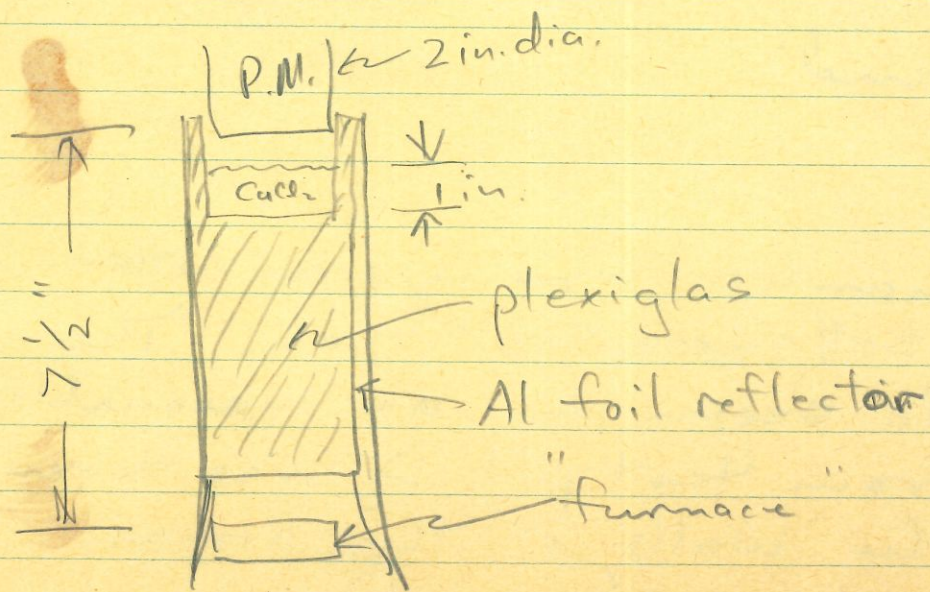 P.M.
2 in. dia.
CuCl₂
1 in.
7 1/2"
plexiglas
Al foil reflector
"furnace"